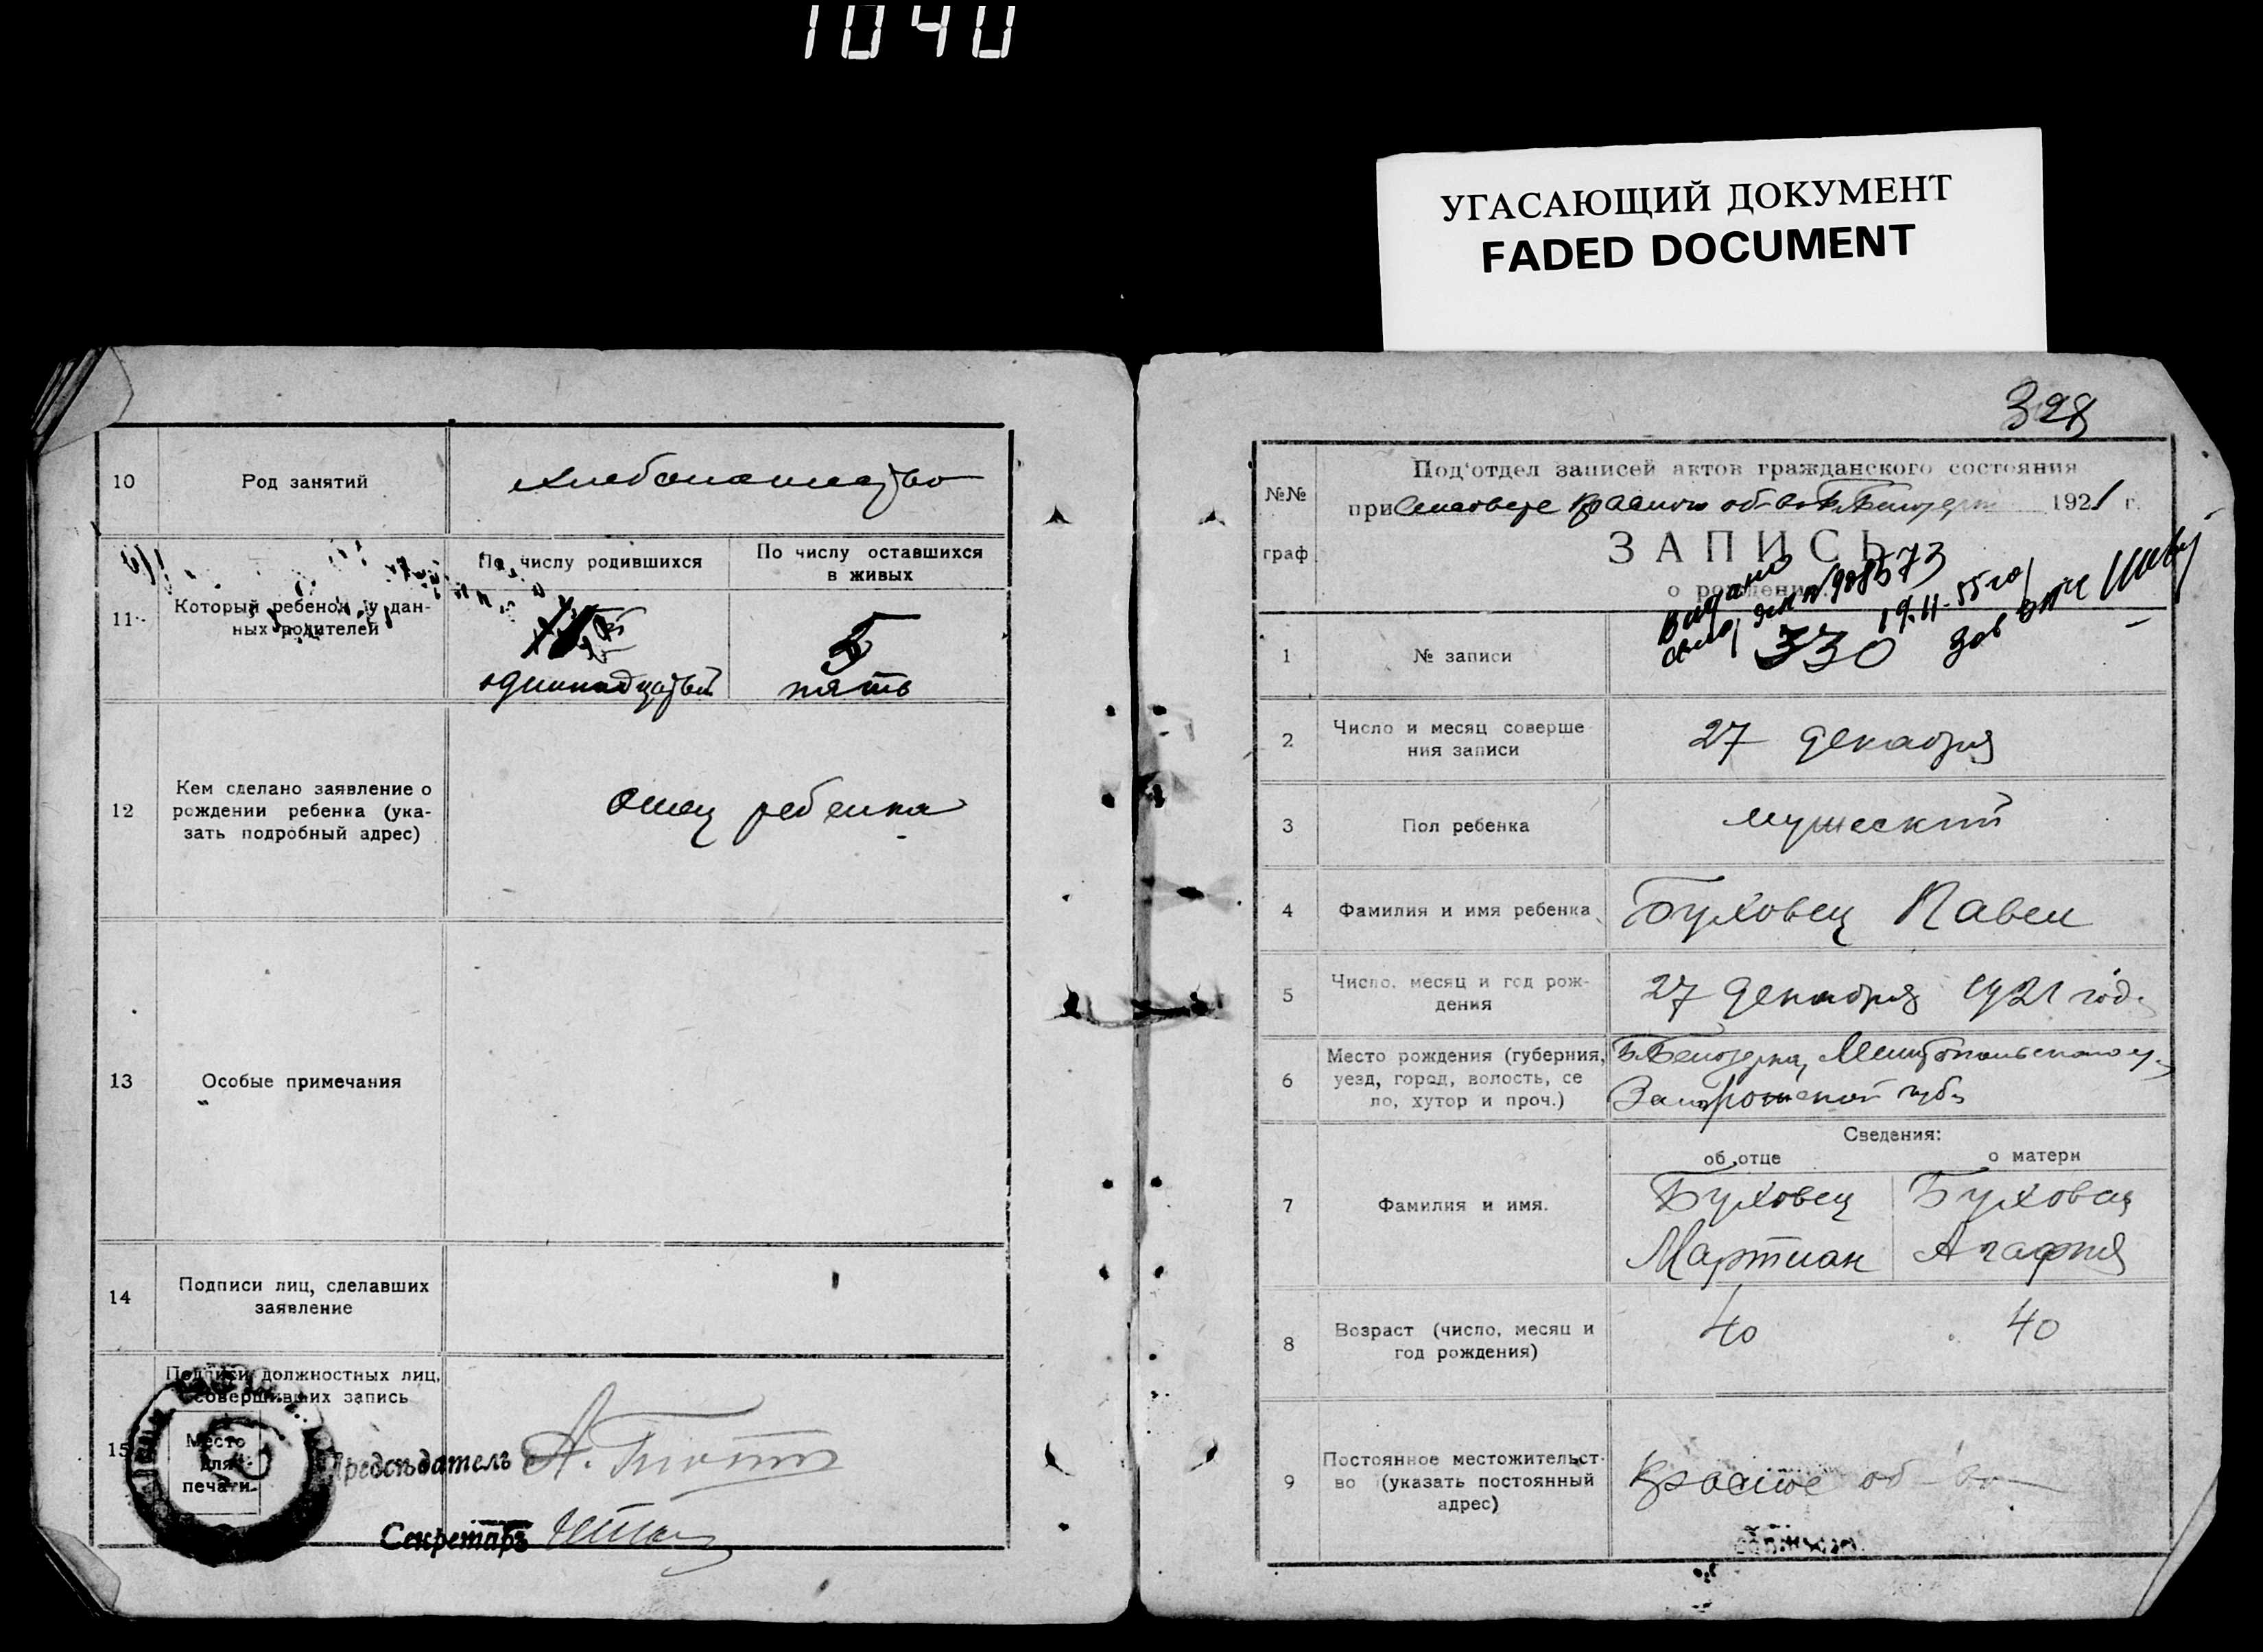 1040
УГАСАЮЩИЙ ДОКУМЕНТ
FADED DOCUMENT
10
Род занятий
хлебопашество
11
Который ребенок у дан-
ных родителей
По числу родившихся
По числу оставшихся
в живых
одиннадцатый
5
пять
12
Кем сделано заявление о
рождении ребенка (ука-
зать подробный адрес)
отец ребенка
13
Особые примечания
14
Подписи лиц, сделавших
заявление
15
Подписи должностных лиц,
совершивших запись
Место
для
печати
Предсѣдатель
Секретарь
328
№№
граф
Под'отдел записей актов гражданского состояния
при 1921 г.
ЗАПИСЬ
о рождении
Выдано
№ 908573
19.11-55 го
Зав
1
№ записи
330
2
Число и месяц соверше
ния записи
27 декабря
3
Пол ребенка
мужеский
4
Фамилия и имя ребенка
Буховец Павел
5
Число, месяц и год рож-
дения
27 декабря 1921 год.
6
Место рождения (губерния,
уезд, город, волость, се
ло, хутор и проч.)
Б. Белозерка, Мелитопольского у.
Запорожской губ.
7
Фамилия и имя.
Сведения:
об отце
о матери
Буховец
Мартиан
Буховец
Агафия
8
Возраст (число, месяц и
год рождения)
40
40
9
Постоянное местожительст-
во (указать постоянный
адрес)
Красное об-во